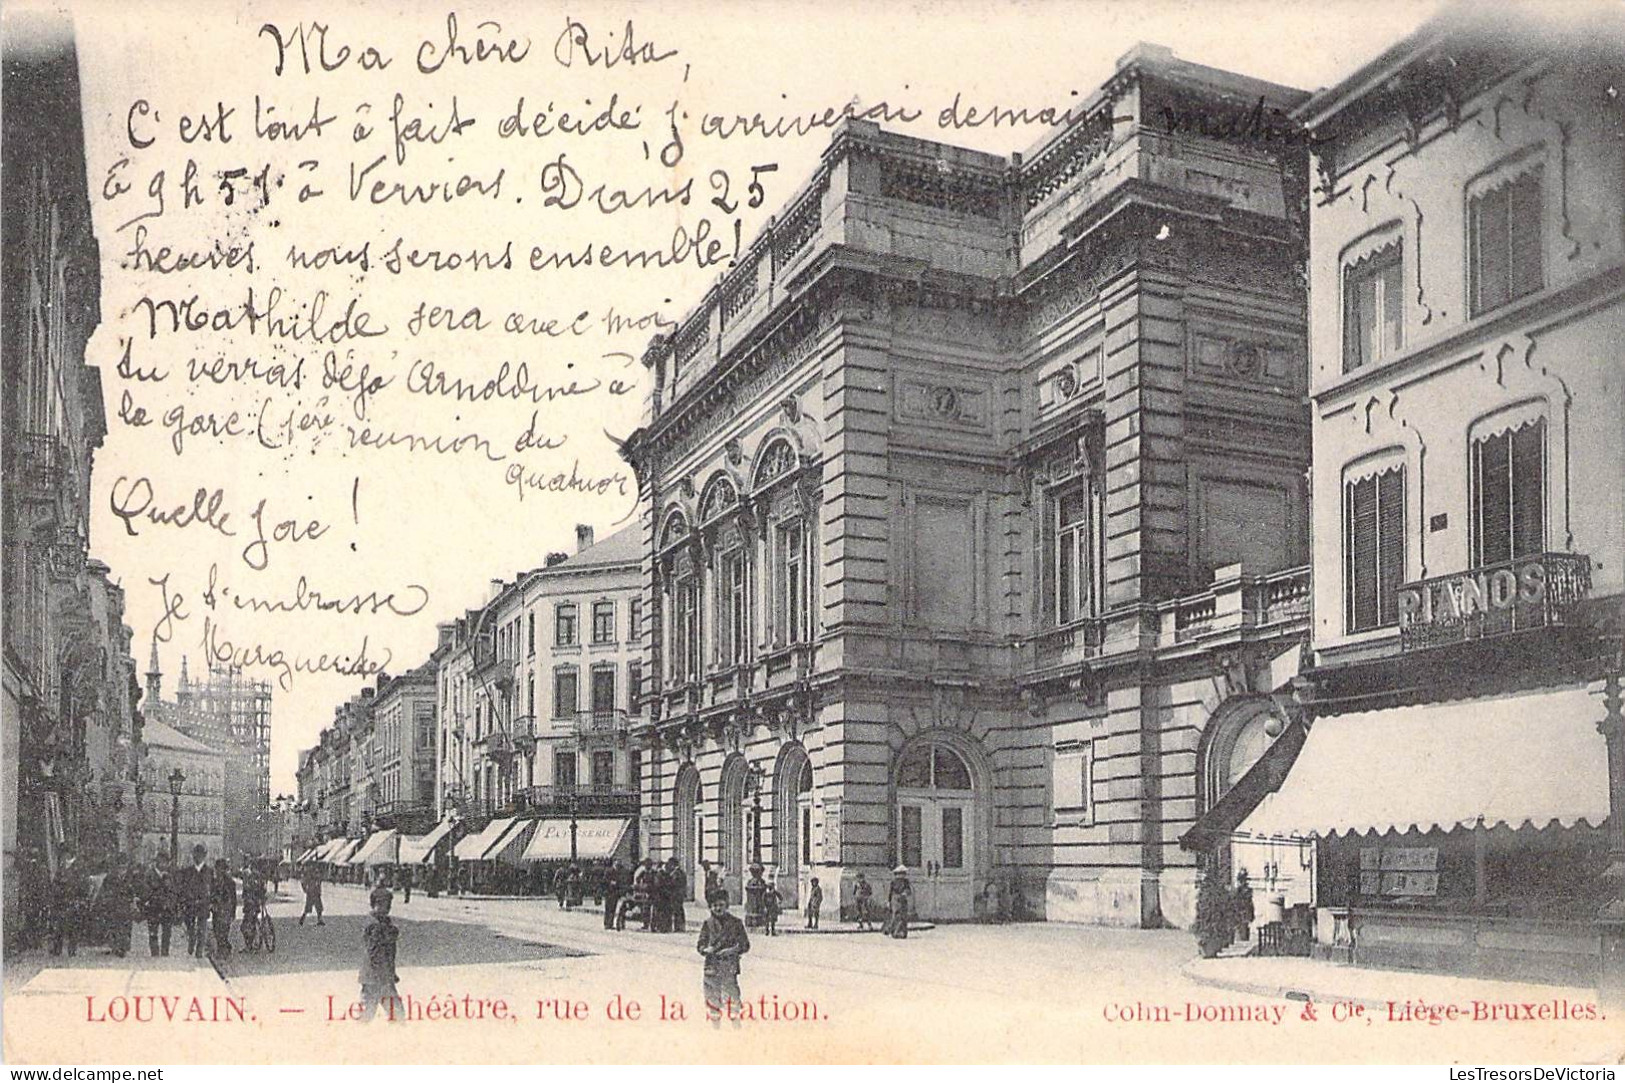 Ma chère Rita,
C'est tout à fait décidé, j'arriverai demain matin
à 9h51 à Verviers. Dans 25
heures nous serons ensemble!
Mathilde sera avec moi,
tu verras déjà Arnoldine à
la gare (1ère réunion du
quatuor)
Quelle joie!
Je t'embrasse
Marguerite
PIANOS
PATISSERIE
LOUVAIN. — Le Théâtre, rue de la Station.
Cohn-Donnay & Cie, Liège-Bruxelles.
LesTresorsDeVictoria
delcampe.net